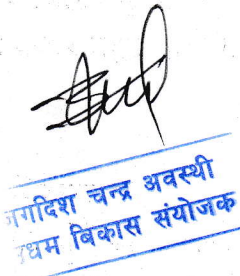 जगदिश चन्द्र अवस्थी
उधम बिकास संयोजक